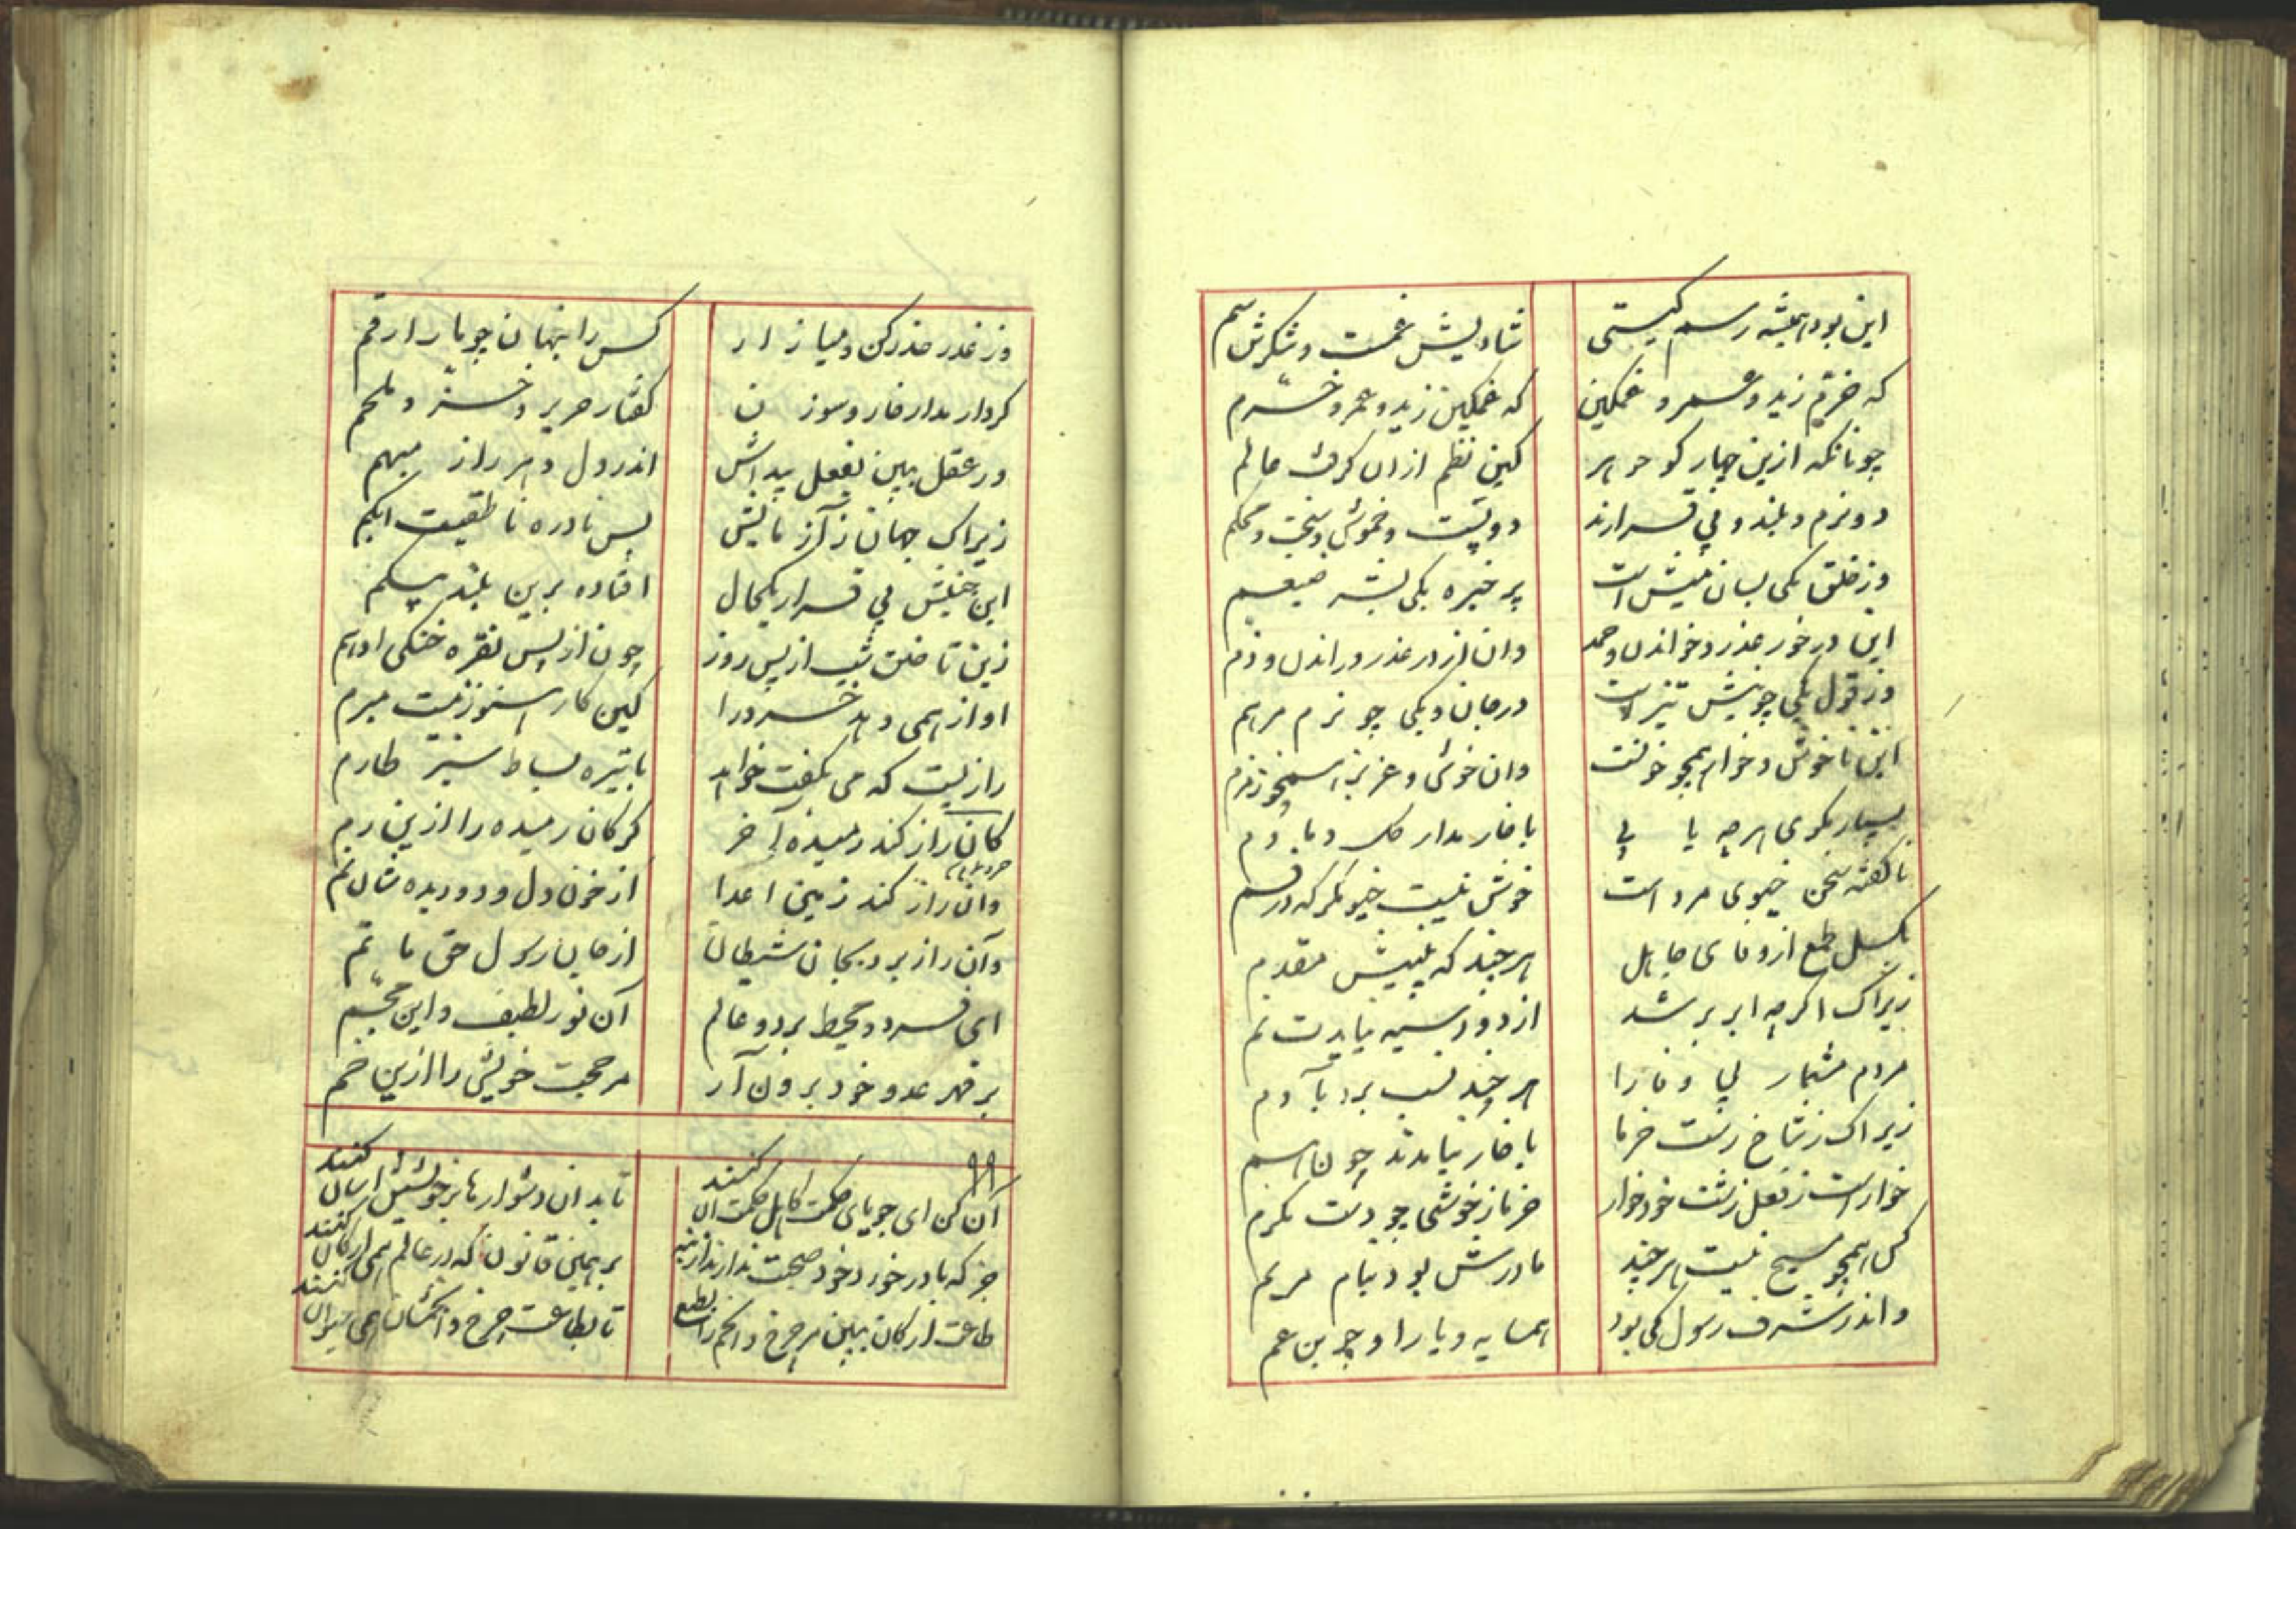 این بود همیشه رسم گیتی شادیش غمست و شکرش سم
که خرم زید و عمرو غمگین که غمگین زید و عمرو خرم
چونانکه ازین چهار گوهر کین نظم ازان گرفت عالم
دو نرم و بلند و بی قرارند دو پست و خموش و سخت و محکم
وز خلق یکی بسان میش است پر خیره یکی بشر ضیغم
این در خور عذر و خواندن و حمد وان از در عذر و راندن و ذم
وز قول یکی چو نیش تیز است در جان و یکی چو نرم مرهم
این ناخوش و خوار همچو خونست وان خوش و عزیز همچو زمزم
بسیار مگوی هرچه یابی با خار مدار گل دمادم
ناگفته سخن خیوی مرد است خوش نیست خیو مگر که در فم
بگسل طمع از وفای جاهل هرچند که بینیش مقدم
زیراک اگرچه ابر بر شد از دود سیه نیایدت نم
مردم مشمار بی وفا را هرچند نسب برد بآدم
زیراک ز شاخ رست خرما با خار نیامدند چون هم
خوار است ز فعل زشت خود خوار خرما ز خوشی چو دست مکرم
کس همچو مسیح نیست هرچند مادرش بود بنام مریم
واندر شرف رسول کی بود همسایه و یار او چو بن عم
وز غدر حذر کن و میازار کس را پنهان چو مار ارقم
کردار مدار خار و سوزن گفتار حریر و خز و ملحم
در عقل ببین بفعل پیداش اندر دل دهر راز مبهم
زیراک جهان ز آزمایش بس نادره ناطقیست ابکم
این جنبش بی قرار یکحال افتاده برین بلند پیکم
زین تاختن شب از پس روز چون از پس نقره خنگی ادهم
آواز همی دهد خرد را کین کار هنوز نیست مبرم
رازیست که می بگفت خواهد با تیره بساط سبز طارم
کان راز کند رمیده آخر گرگان رمیده را ازین رم
وان راز کند زمین اعدا از خون دل و دو دیده شان نم
وان راز برد بجان شیطان از جان رسول حق ماتم
ای فرد و محیط بر دو عالم آن نور لطیف و این مجسم
بر قهر عدو خود برون آر مر حجت خویش را ازین خم
۱۱
آن کن ای جویای حکمت کاهل حکمت آن کنند تا بدان دشوارها بر خویشتن آسان کنند
جز که ما در خورد خود صحبت ندارند از بنه بر همین قانون که در عالم همی ارکان کنند
طاعت ارکان ببین مر چرخ و انجم را بطبع تا بطاعت چرخ و انجمشان همی حیوان کنند